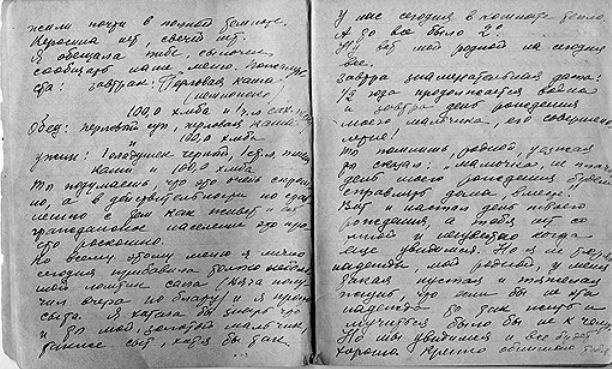 жили почти в полной темноте.
Керосина нет, свечей нет.
Я обещала тебе, сыночек
сообщать наше меню. Пожалуйста
ста: завтрак: Перловая каша
(немножко)
100,0 хлеба и 1 ч.л. сах.
Обед: перловый суп, перловая каша
и 100,0 хлеба
ужин: 1 оладушек черный, 1 ст.л.
каши и 100,0 хлеба
Ты подумаешь, что это очень скром
но, а в действительности по срав
нению с тем как живет
гражданское население это про
сто роскошно.
Ко всему этому меню я лично
сегодня прибавила
ломтик сала (Катя полу
чил вчера по блату) и я просто
сыта. Я хотела бы знать что
и ты мой, золотой мальчик,
также сыт, хотя бы так
У нас сегодня в комнате тепло
А то все было 2°
Ну вот мой родной на сегодня
все.
Завтра знаменательная дата:
1/2 года продолжается война
и завтра день рождения
моего мальчика, его совершенно
летие!
Ты помнишь, родной, уезжая
ты сказал: "мамочка, не плачь
день моего рождения будем
справлять дома, вместе!
Вот и настал день твоего
рождения, а тебя нет со
мной и неизвестно когда
еще увидимся. Но я не теряю
надежды, мой родный, у меня
такая пустая и тяжелая
жизнь, что если бы не эта
надежда то так жить и
мучиться было бы не к чему
Но мы увидимся и все будет
хорошо. Крепко обнимаю тебя